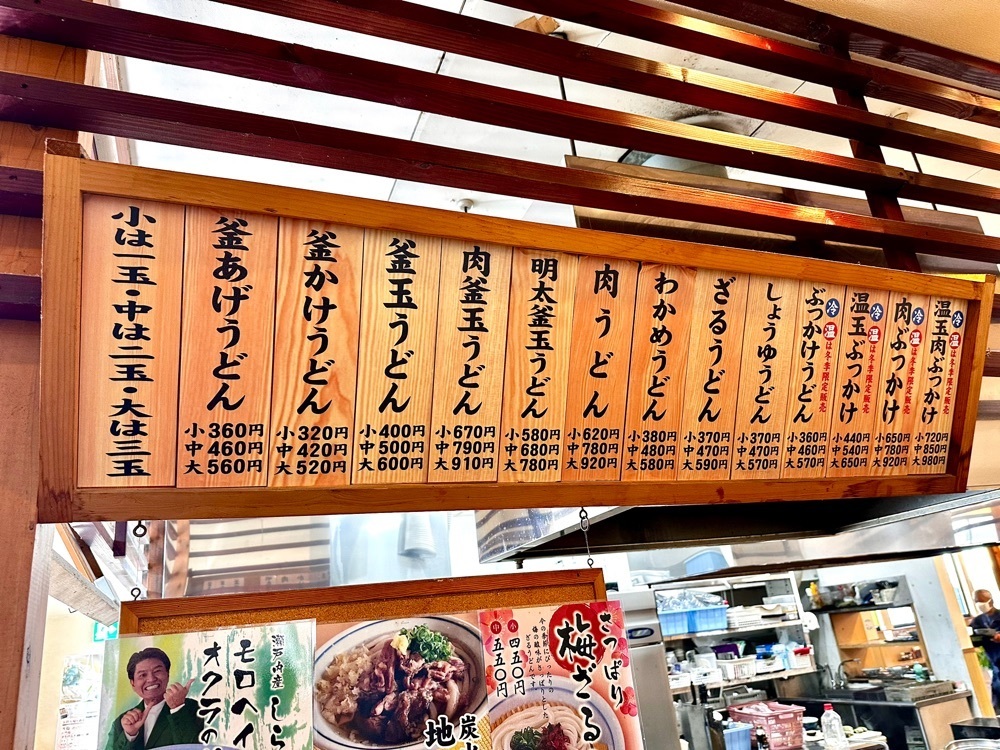 温玉肉ぶっかけ
冷 温は冬季限定販売
小720円
中850円
大980円
肉ぶっかけ
冷 温は冬季限定販売
小650円
中780円
大920円
温玉ぶっかけ
冷 温は冬季限定販売
小440円
中540円
大650円
ぶっかけうどん
冷 温は冬季限定販売
小360円
中460円
大570円
しょうゆうどん
小370円
中470円
大570円
ざるうどん
小370円
中470円
大590円
わかめうどん
小380円
中480円
大580円
肉うどん
小620円
中780円
大920円
明太釜玉うどん
小580円
中680円
大780円
肉釜玉うどん
小670円
中790円
大910円
釜玉うどん
小400円
中500円
大600円
釜かけうどん
小320円
中420円
大520円
釜あげうどん
小360円
中460円
大560円
小は一玉・中は二玉・大は三玉
さっぱり
梅ざる
今の季節にぴったりの
梅の酸味がさっぱりとした
ざるうどんです
小 四五〇円
中 五五〇円
炭火
地
瀬戸内産
しら
モロヘイ
オクラの